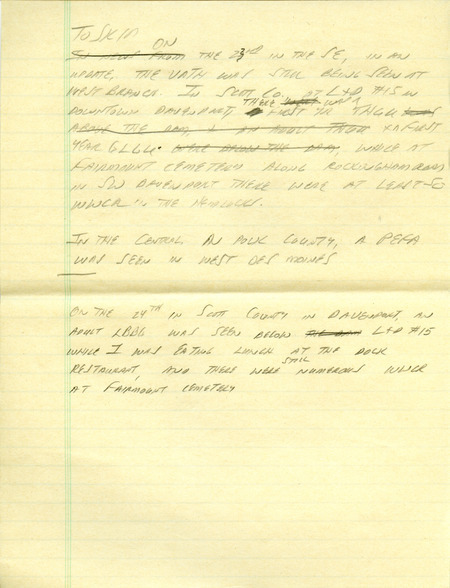 ON
THE 23RD IN THE SE, IN AN
UPDATE, THE VATH WAS STILL BEING SEEN AT
WEST BRANCH. IN SCOTT CO. AT L+D #15 IN
DOWNTOWN DAVENPORT, THERE WAS A FIRST YR THGU
+ A FIRST
YEAR GLGU. WHILE AT
FAIRMOUNT CEMETERY ALONG ROCKINGHAM ROAD
IN SW DAVENPORT THERE WERE AT LEAST 50
WWCR IN THE HEMLOCKS.
IN THE CENTRAL IN POLK COUNTY, A PEFA
WAS SEEN IN WEST DES MOINES
ON THE 24TH IN SCOTT COUNTY IN DAVENPORT, AN
ADULT LBBG WAS SEEN BELOW L+D #15
WHILE I WAS EATING LUNCH AT THE DOCK
RESTAURANT, AND THERE WERE STILL NUMEROUS WWCR
AT FAIRMOUNT CEMETERY